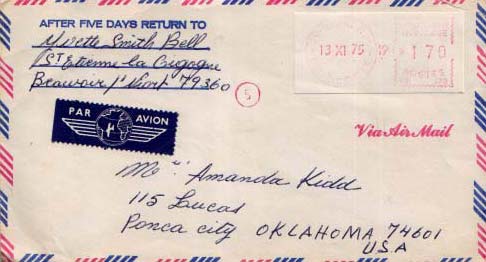 AFTER FIVE DAYS RETURN TO
Smith Bell
St Etienne la Cigogne
Beauvoir s/ Niort 79360
13 XI 75 19
1 70
5
PAR AVION
Via Air Mail
Amanda Kidd
115 Lucas
Ponca city OKLAHOMA 74601
USA